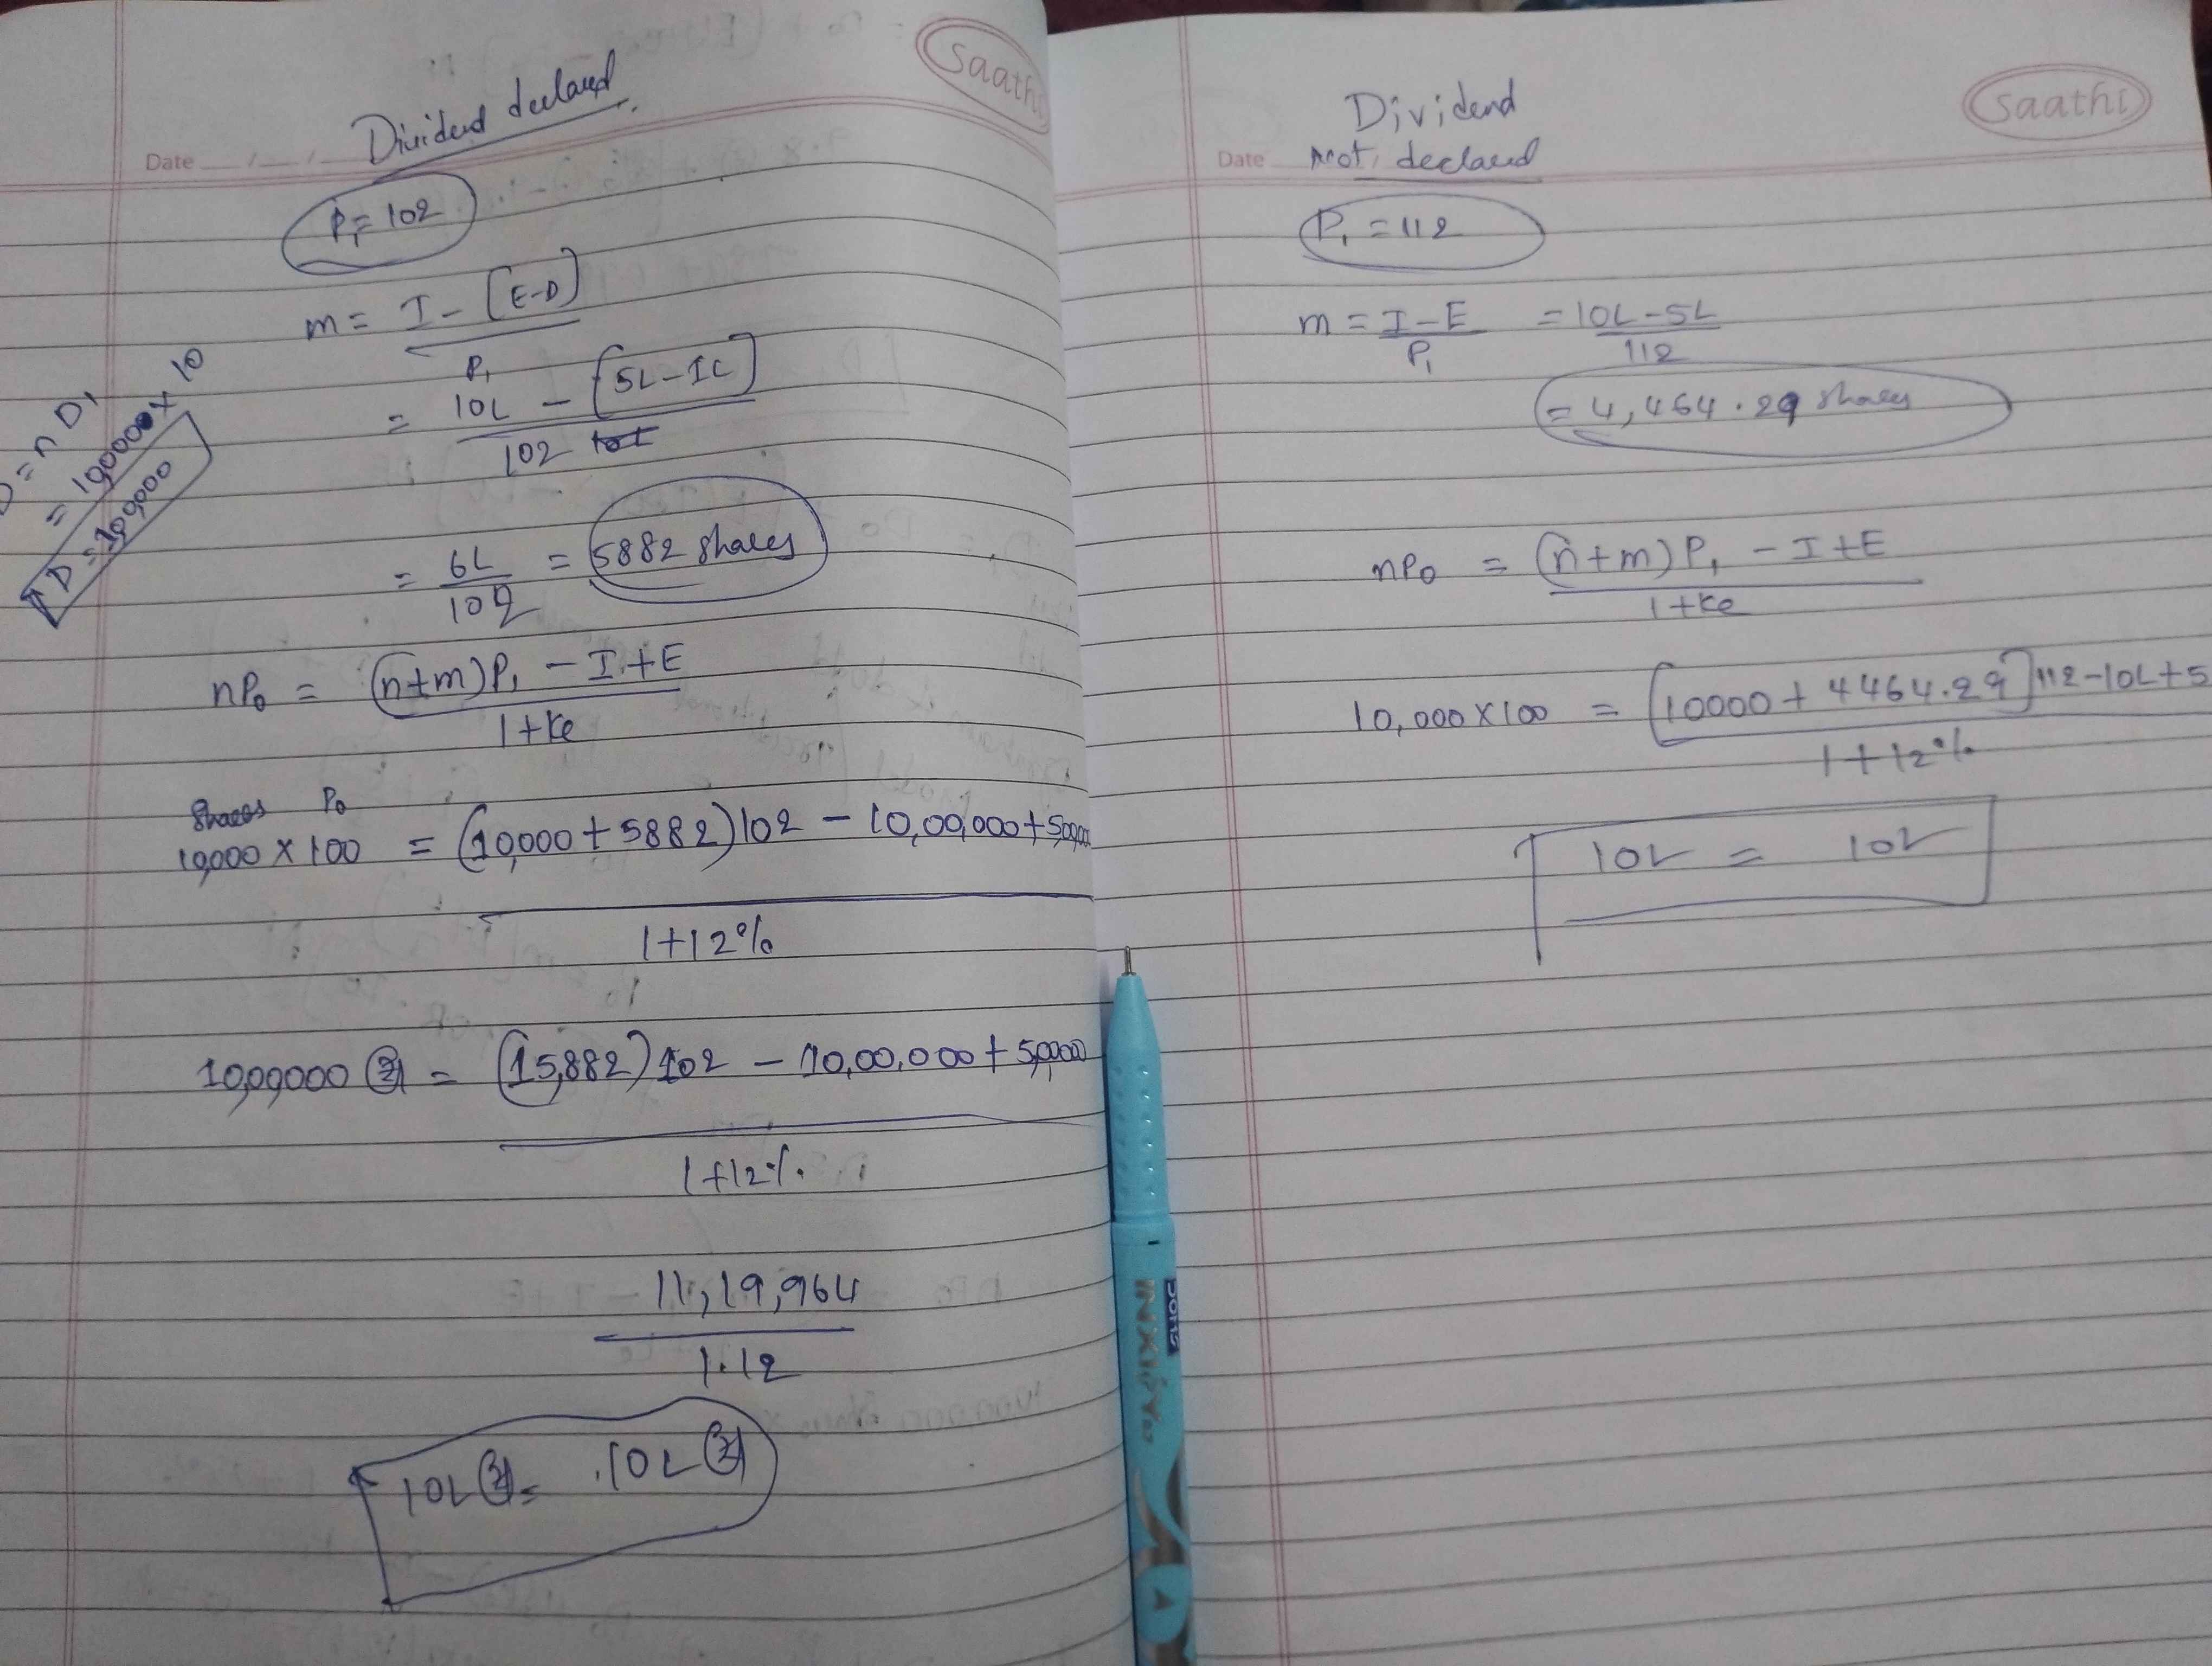 Saathi
Dividend declared
Date
P₁ = 102
m = I - [E-D]
P₁
= 10L - [5L-1L]
102
= 6L = 5882 shares
102
D = n D₁
= 10,000 x 10
D = 100000
nP₀ = (n+m)P₁ - I + E
1+Ke
Shares P₀
10,000 x 100 = (10,000 + 5882)102 - 10,00,000 + 500000
1+12%
10,00000 = (15,882)102 - 10,00,000 + 500000
1+12%
11,19,964
1.12
10L = 10L
Saathi
Dividend
Date Not declared
P₁ = 112
m = I-E = 10L-5L
P₁ 112
= 4,464.29 shares
nP₀ = (n+m)P₁ - I + E
1+Ke
10,000 x 100 = [10000 + 4464.29]112-10L+5
1+12%
10L = 10L
DOMS
INXGLY